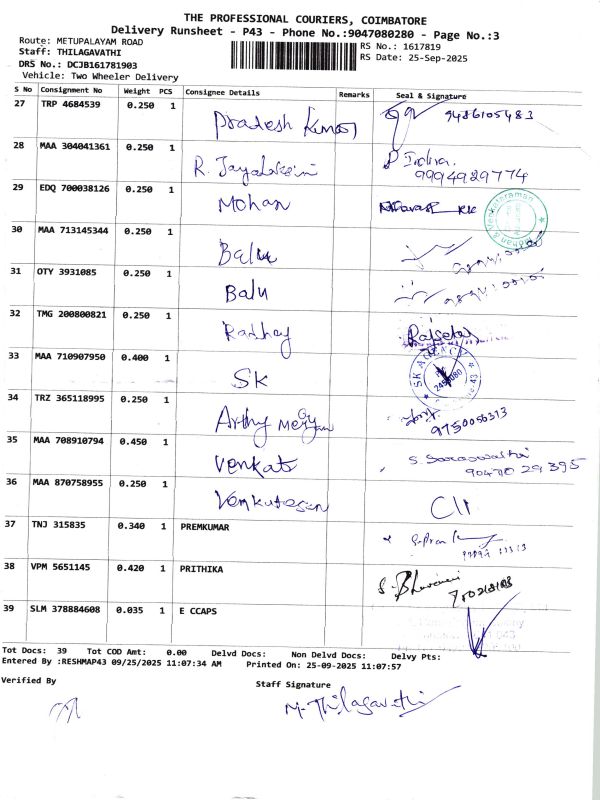 THE PROFESSIONAL COURIERS, COIMBATORE
Delivery Runsheet - P43 - Phone No.:9047080280 - Page No.:3
Route: METUPALAYAM ROAD
RS No.: 1617819
Staff: THILAGAVATHI
RS Date: 25-Sep-2025
DRS No.: DCJB161781903
Vehicle: Two Wheeler Delivery
S No Consignment No Weight PCS Consignee Details Remarks Seal & Signature
27 TRP 4684539 0.250 1 Pradesh Kumar 9486105483
28 MAA 304041361 0.250 1 R. Jayalakshmi P Indira. 9994929774
29 EDQ 700038126 0.250 1 Mohan
30 MAA 713145344 0.250 1 Balu
31 OTY 3931085 0.250 1 Balu
32 TMG 200800821 0.250 1 Radhey Rajsekar
33 MAA 710907950 0.400 1 SK SK AGENCY
34 TRZ 365118995 0.250 1 Arthy 9750056313
35 MAA 708910794 0.450 1 Venkat S. Saraswathi 90470 29395
36 MAA 870758955 0.250 1 Venkatesan
37 TNJ 315835 0.340 1 PREMKUMAR
38 VPM 5651145 0.420 1 PRITHIKA
39 SLM 378884608 0.035 1 E CCAPS
Tot Docs: 39 Tot COD Amt: 0.00 Delvd Docs: Non Delvd Docs: Delvy Pts:
Entered By :RESHMAP43 09/25/2025 11:07:34 AM Printed On: 25-09-2025 11:07:57
Verified By Staff Signature
M. Thilagavathi